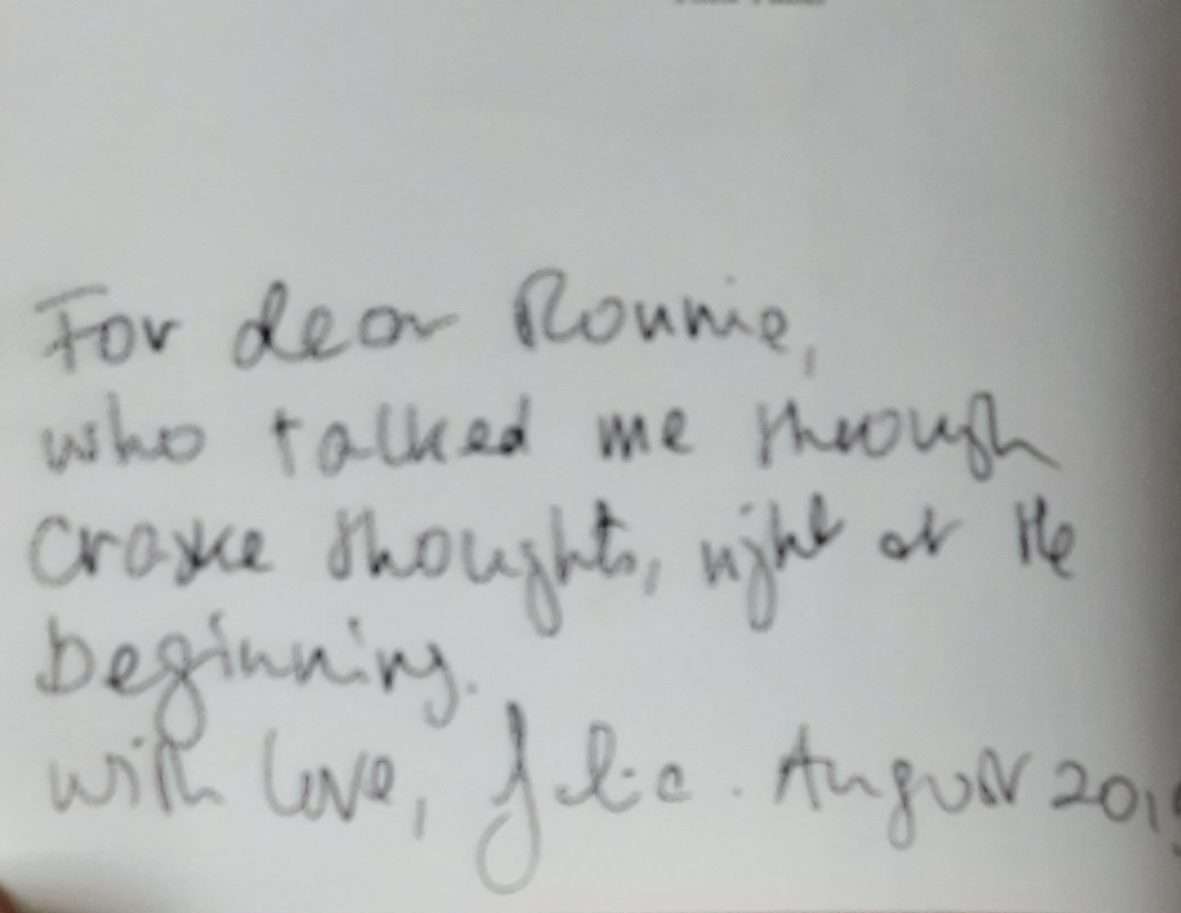 For dear Ronnie,
who talked me through
Craske thoughts, right at the
beginning.
with love, August 201